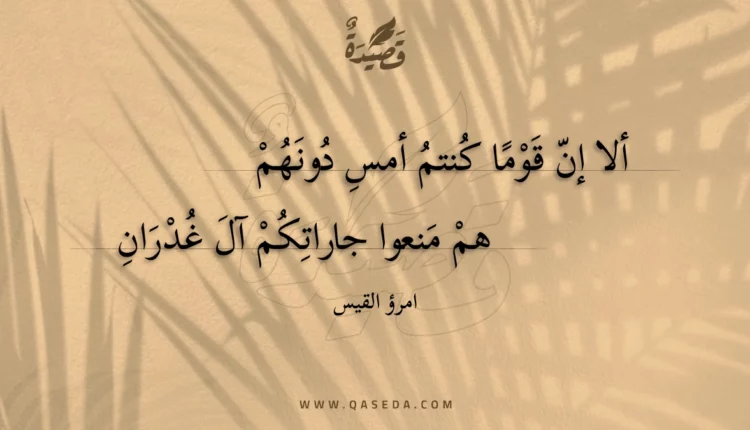 قَصِيدَةٌ
ألا إنّ قَوْمًا كُنتمُ أمسِ دُونَهُمْ
همْ مَنعوا جاراتِكُمْ آلَ غُدْرَانِ
امرؤ القيس
WWW.QASEDA.COM